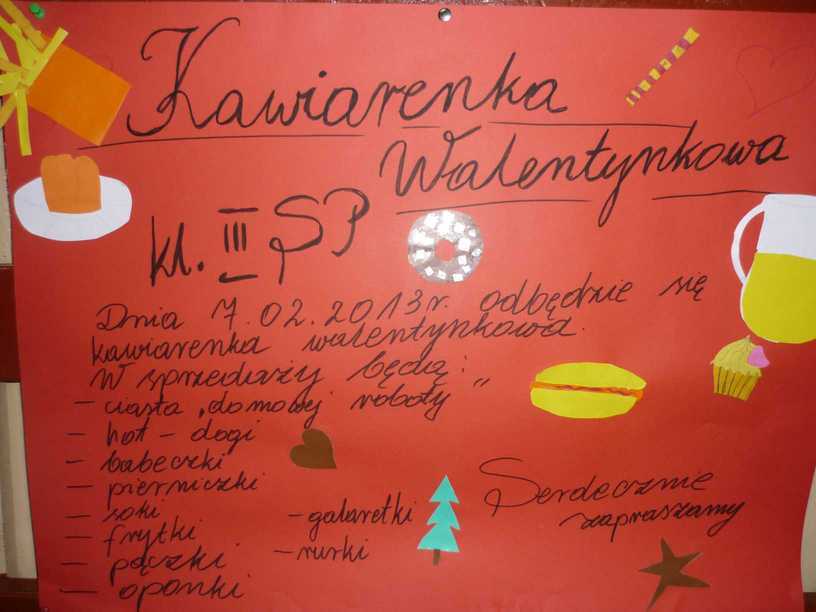 Kawiarenka
Walentynkowa
kl. III SP
Dnia 7.02.2013r. odbędzie się
kawiarenka walentynkowa.
W sprzedaży będą:
- ciasta „domowej roboty"
- hot-dogi
- babeczki
- pierniczki
- soki
- frytki
- pączki
- oponki
- galaretki
- rurki
Serdecznie
zapraszamy